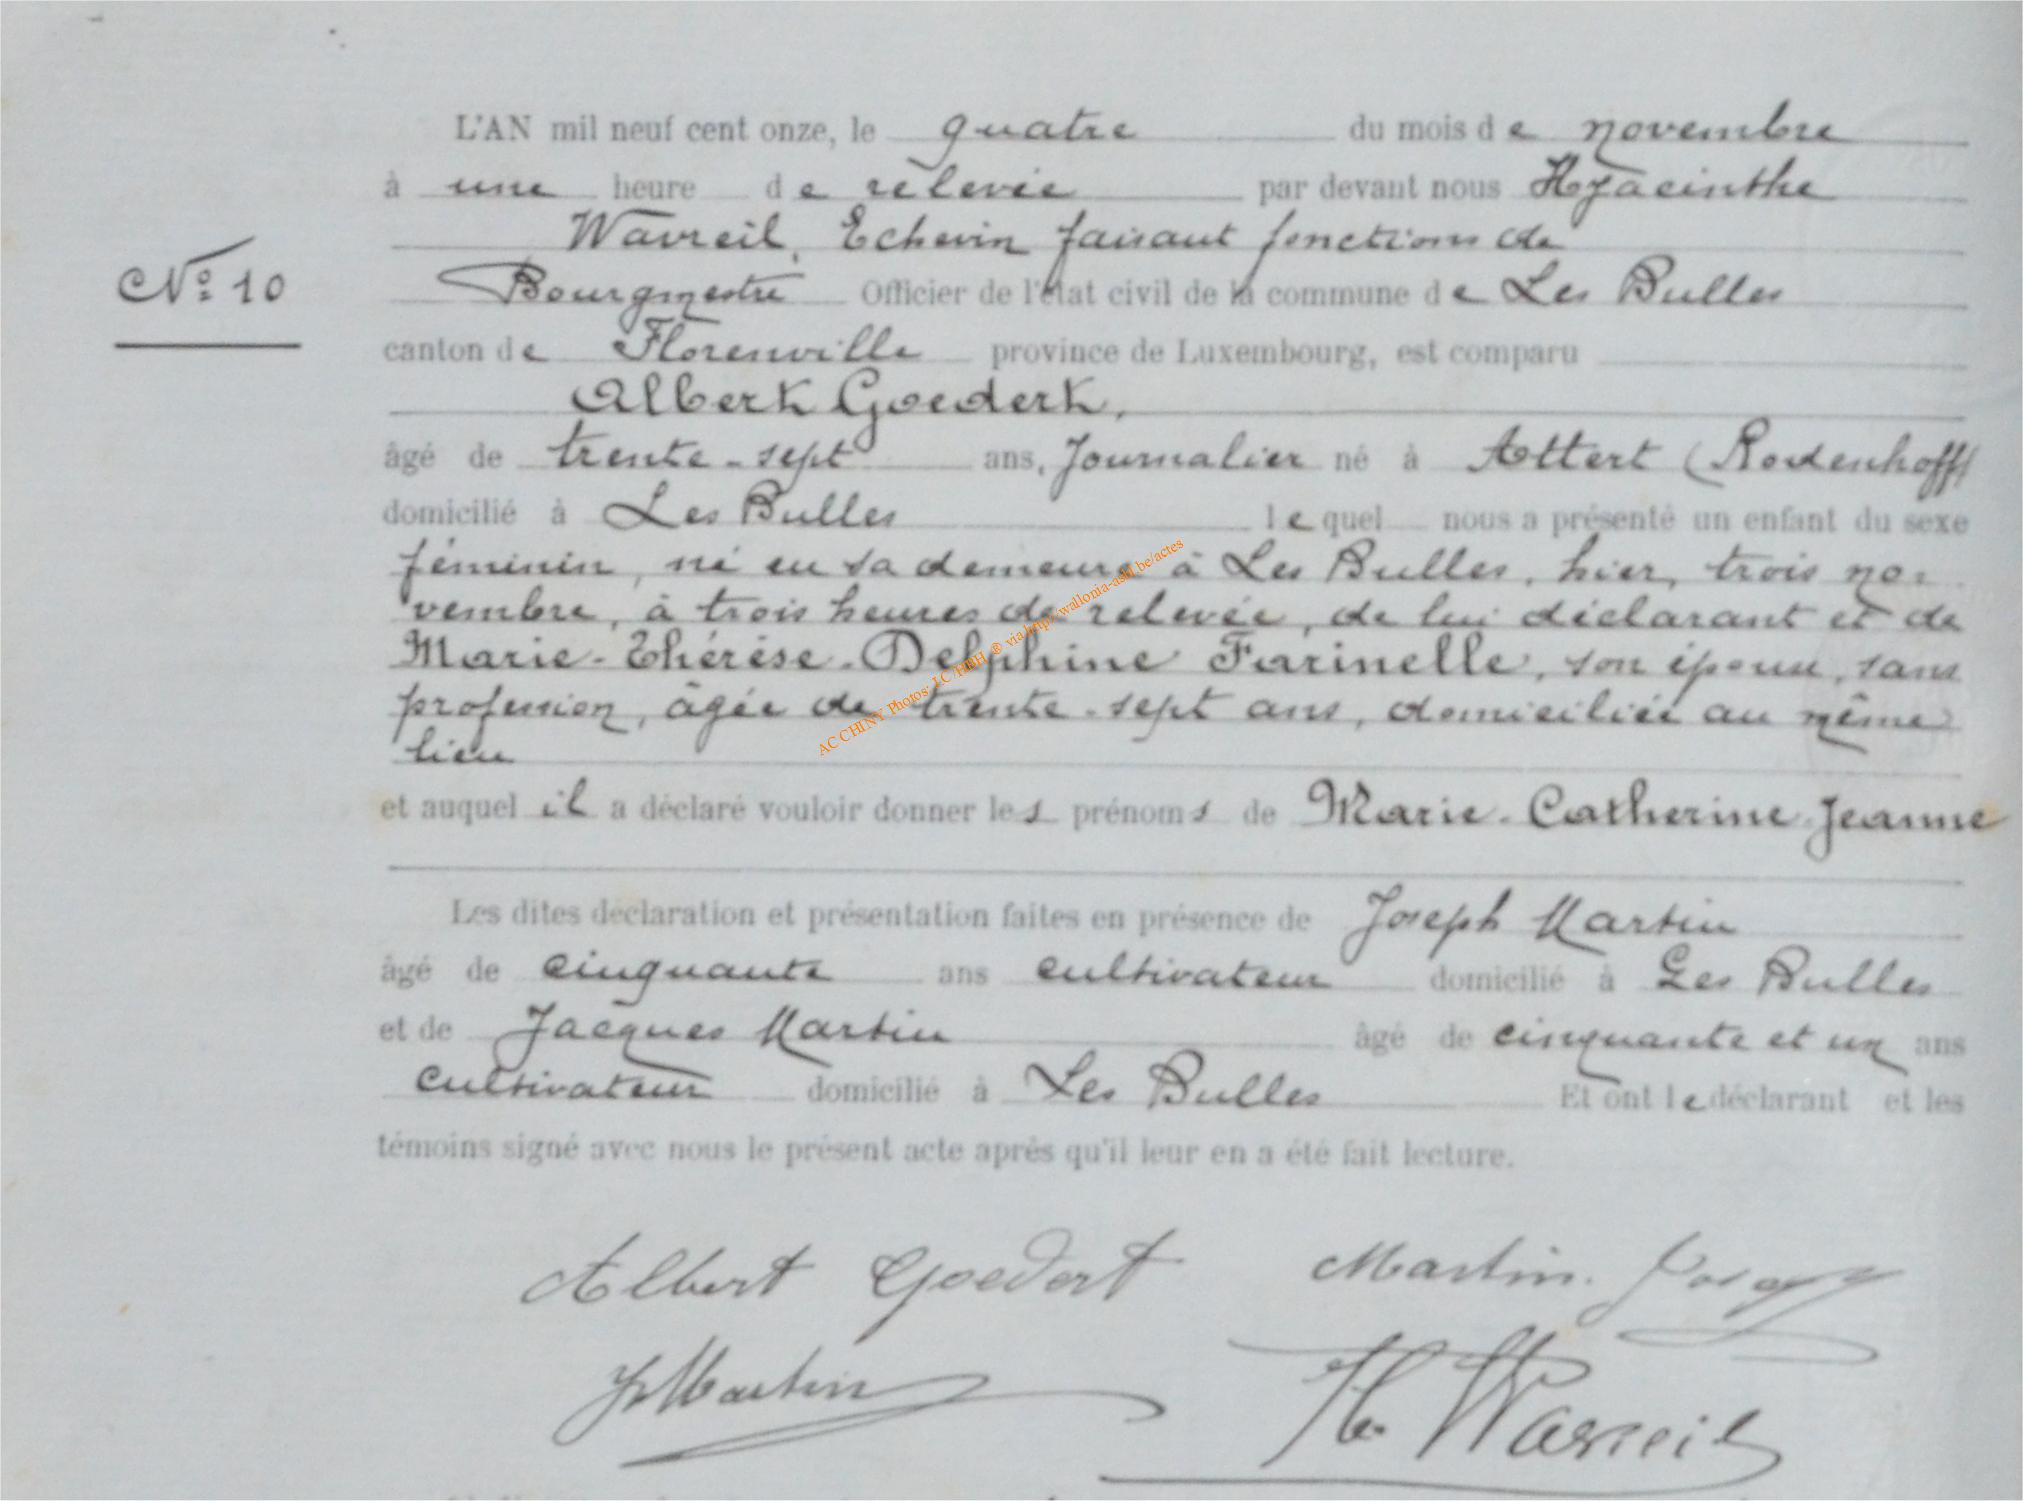 L'AN mil neuf cent onze, le quatre du mois de novembre
à une heure de relevée par devant nous Hyacinthe
Wavreil, Echevin faisant fonctions de
N° 10
Bourgmestre Officier de l'état civil de la commune de Les Bulles
canton de Florenville province de Luxembourg, est comparu
Albert Goedert,
âgé de trente-sept ans, Journalier né à Attert (Rodenhoff)
domicilié à Les Bulles lequel nous a présenté un enfant du sexe
féminin, né en sa demeure à Les Bulles, hier, trois no-
vembre, à trois heures de relevée, de lui déclarant et de
Marie-Thérèse-Delphine Farinelle, son épouse, sans
profession, âgée de trente-sept ans, domiciliée au même
lieu
et auquel il a déclaré vouloir donner les prénoms de Marie-Catherine-Jeanne
Les dites déclaration et présentation faites en présence de Joseph Martin
âgé de cinquante ans cultivateur domicilié à Les Bulles
et de Jacques Martin âgé de cinquante et un ans
cultivateur domicilié à Les Bulles Et ont le déclarant et les
témoins signé avec nous le présent acte après qu'il leur en a été fait lecture.
Albert Goedert Martin
Martin H. Wavreil
AC CHINY Photos: J.C/HBH ® via http://wallonia-asbl.be/actes